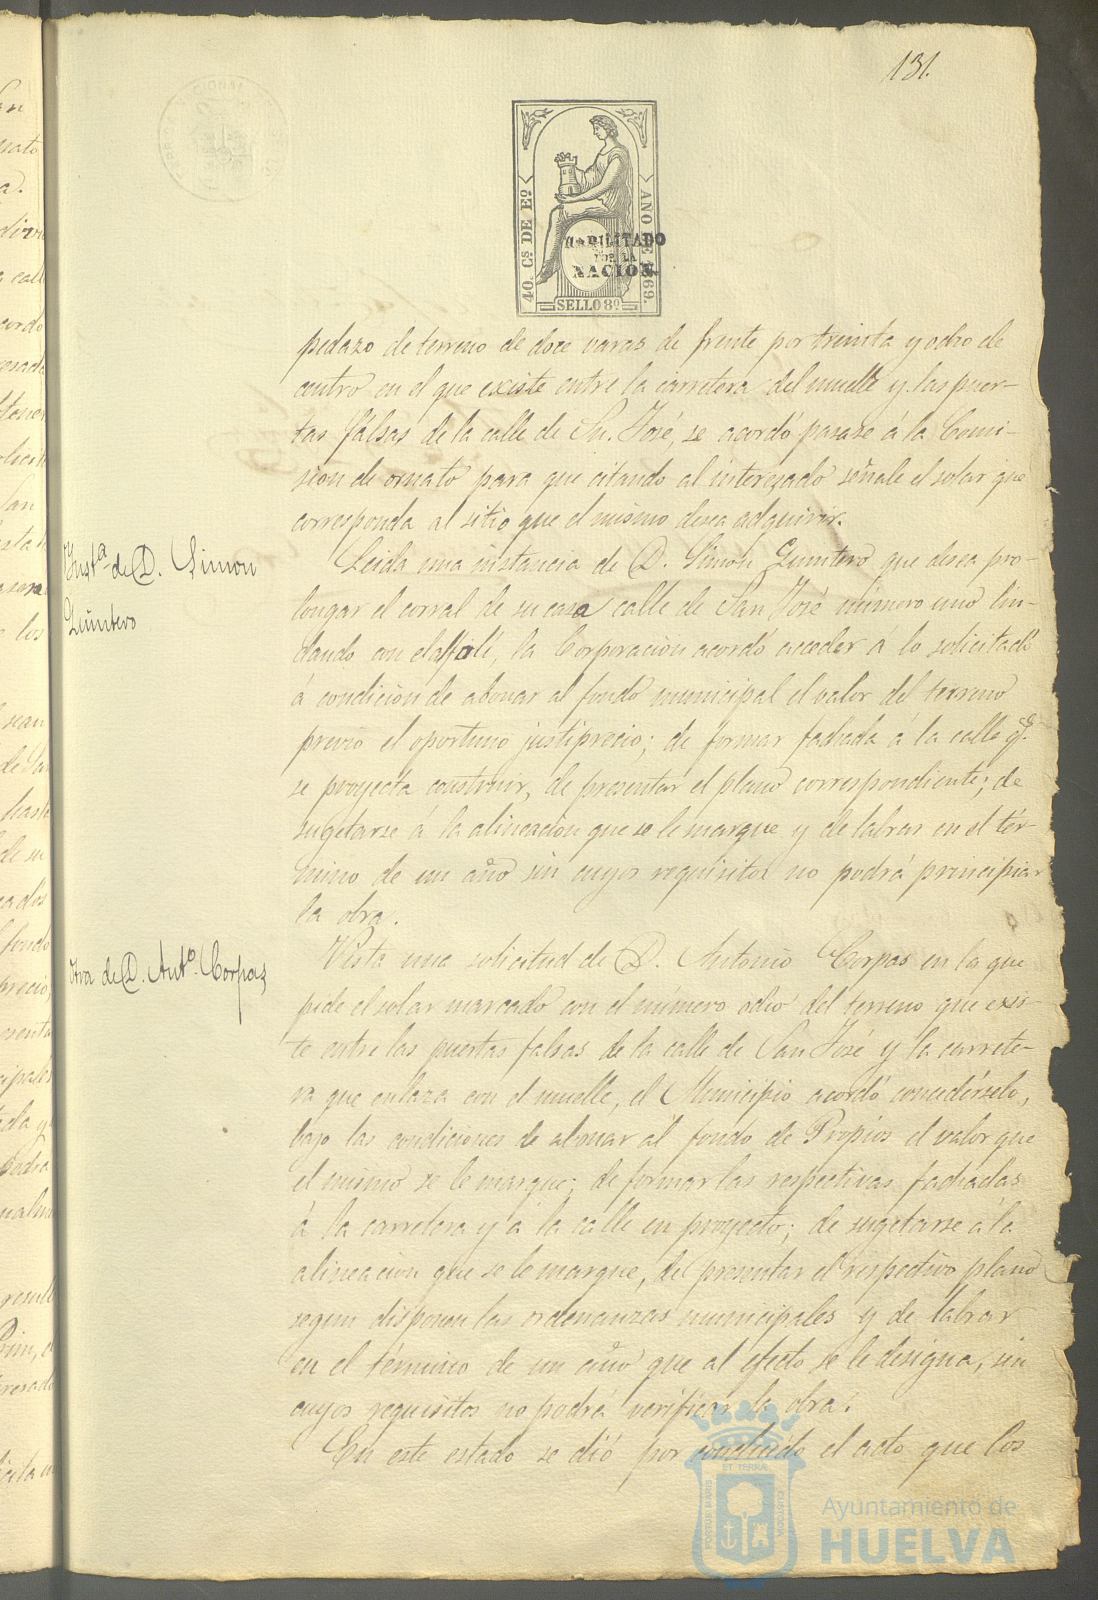 131.
40. Cs DE Eo.
AÑO DE 1869.
HABILITADO
POR LA
NACION.
SELLO 8º
pedazo de terreno de doce varas de frente por treinta y ocho de
centro en el que existe entre la carretera del muelle y las puer-
tas fálsas de la calle de Sn. José, se acordó pasase á la Comi-
sion de ornato para que citando al interesado señale el solar que
corresponda al sitio que el mismo desea adquirir.
Ynsta de D. Simon
Quintero
Leida una instancia de D. Simon Quintero que desea pro-
longar el corral de su casa calle de San José número uno lin-
dando con el alfolí, la Corporacion acordó acceder á lo solicitado
á condicion de abonar al fondo municipal el valor del terreno
previo el oportuno justiprecio; de formar fachada á la calle q.e
se proyecta construir, de presentar el plano correspondiente; de
sugetarse á la alineacion que se le marque y de labrar en el tér-
mino de un año sin cuyos requisitos no podrá principiar
la obra.
Otra de D. Anto. Corpas
Vista una solicitud de D. Antonio Corpas en la que
pide el solar marcado con el número ocho del terreno que exis-
te entre las puertas falsas de la calle de San José y la carrete-
ra que enlaza con el muelle, el Municipio acordó concedérselo,
bajo las condiciones de abonar al fondo de Propios el valor que
el mismo se le marque; de formar las respectivas fachadas
á la carretera y á la calle en proyecto; de sugetarse á la
alineacion que se le marque, de presentar el respectivo plano
segun disponen las ordenanzas municipales y de labrar
en el término de un año que al efecto se le designa, sin
cuyos requisitos no podrá verificar la obra.
En este estado se dió por concluido el acto que los
PORTUS MARIS
ET TERRÆ
CUSTODIA
Ayuntamiento de
HUELVA